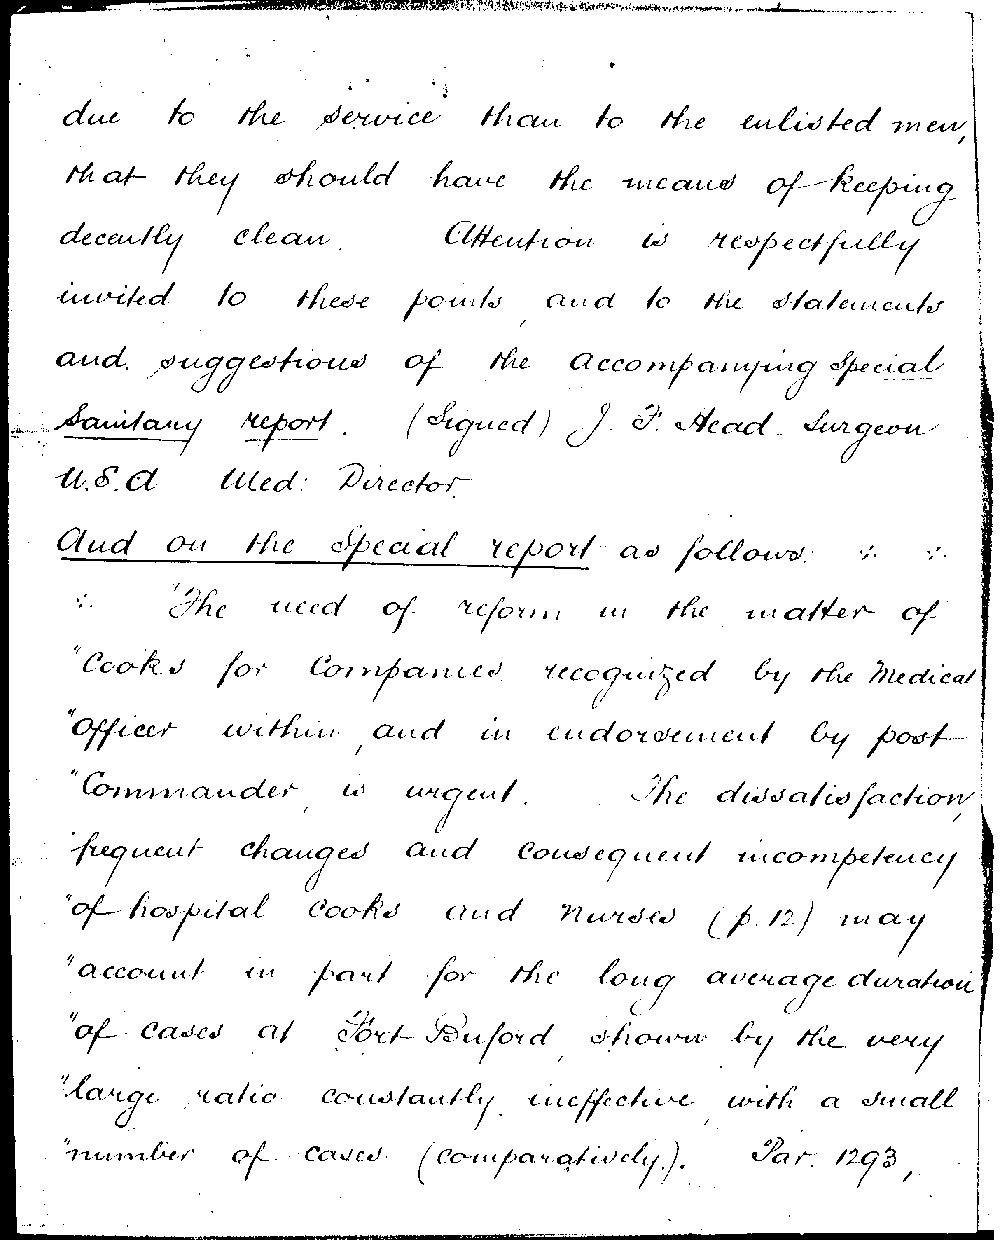 due to the service than to the enlisted men,
that they should have the means of keeping
decently clean. Attention is respectfully
invited to these points, and to the statements
and suggestions of the accompanying Special
Sanitary report. (Signed) J. F. Head Surgeon
U.S.A Med: Director.
And on the Special report as follows:
"The need of reform in the matter of
"Cooks for Companies recognized by the Medical
"Officer within, and in endorsement by post
"Commander, is urgent. The dissatisfaction,
"frequent changes and consequent incompetency
"of hospital cooks and nurses (p. 12) may
"account in part for the long average duration
"of cases at Fort Buford, shown by the very
"large ratio constantly ineffective, with a small
"number of cases (comparatively.). Par. 1293,